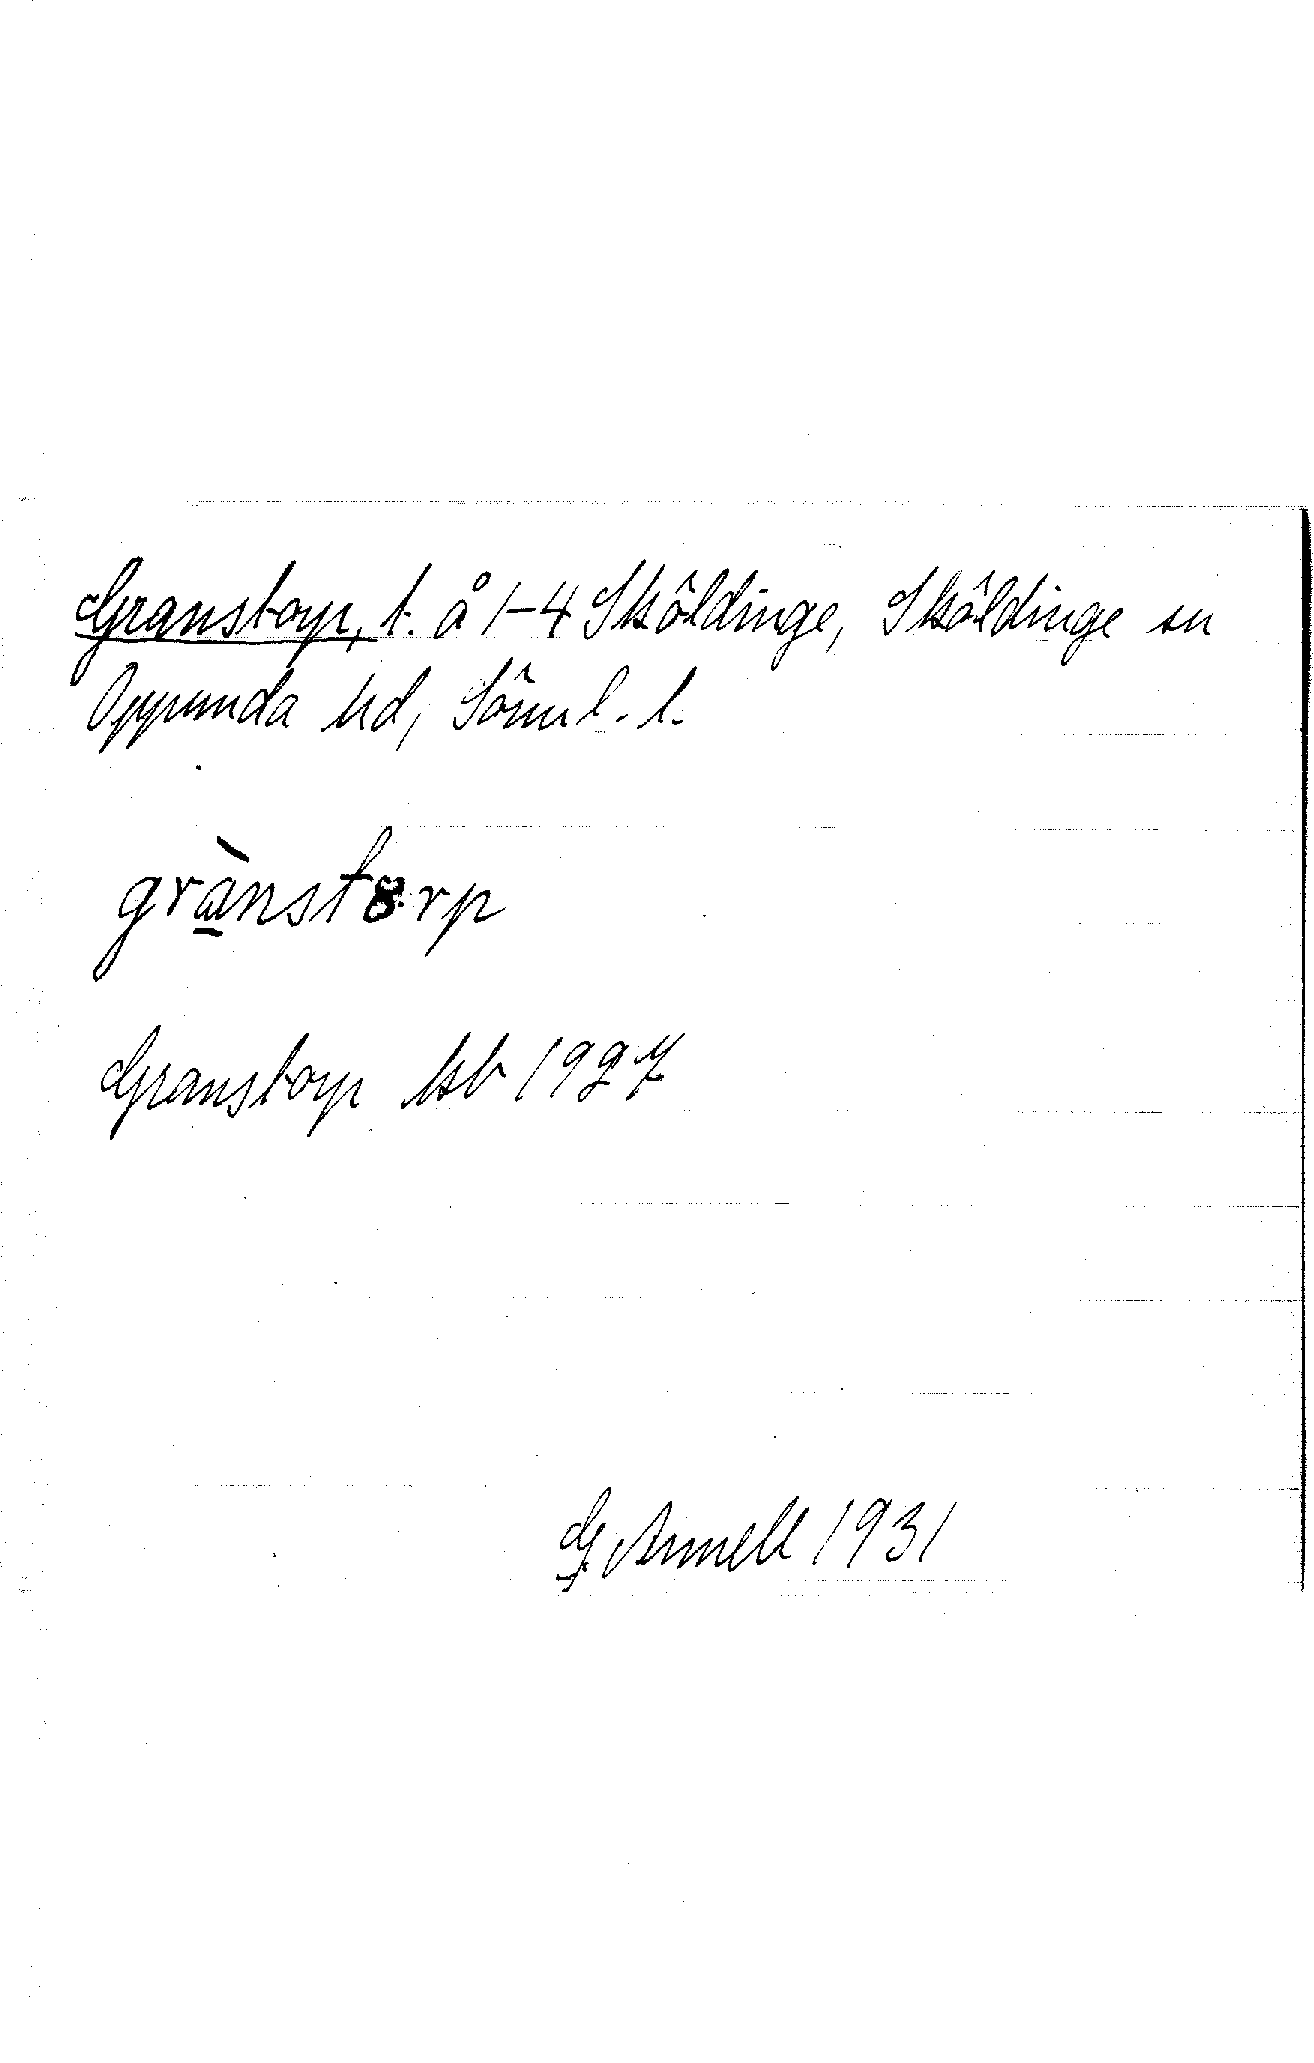 Granstorp, t. å 1-4 Sköldinge, Sköldinge sn
Oppunda hd, Söml. l.
grà̱nstȣrp
Granstorp kb 1927
G. Annell 1931